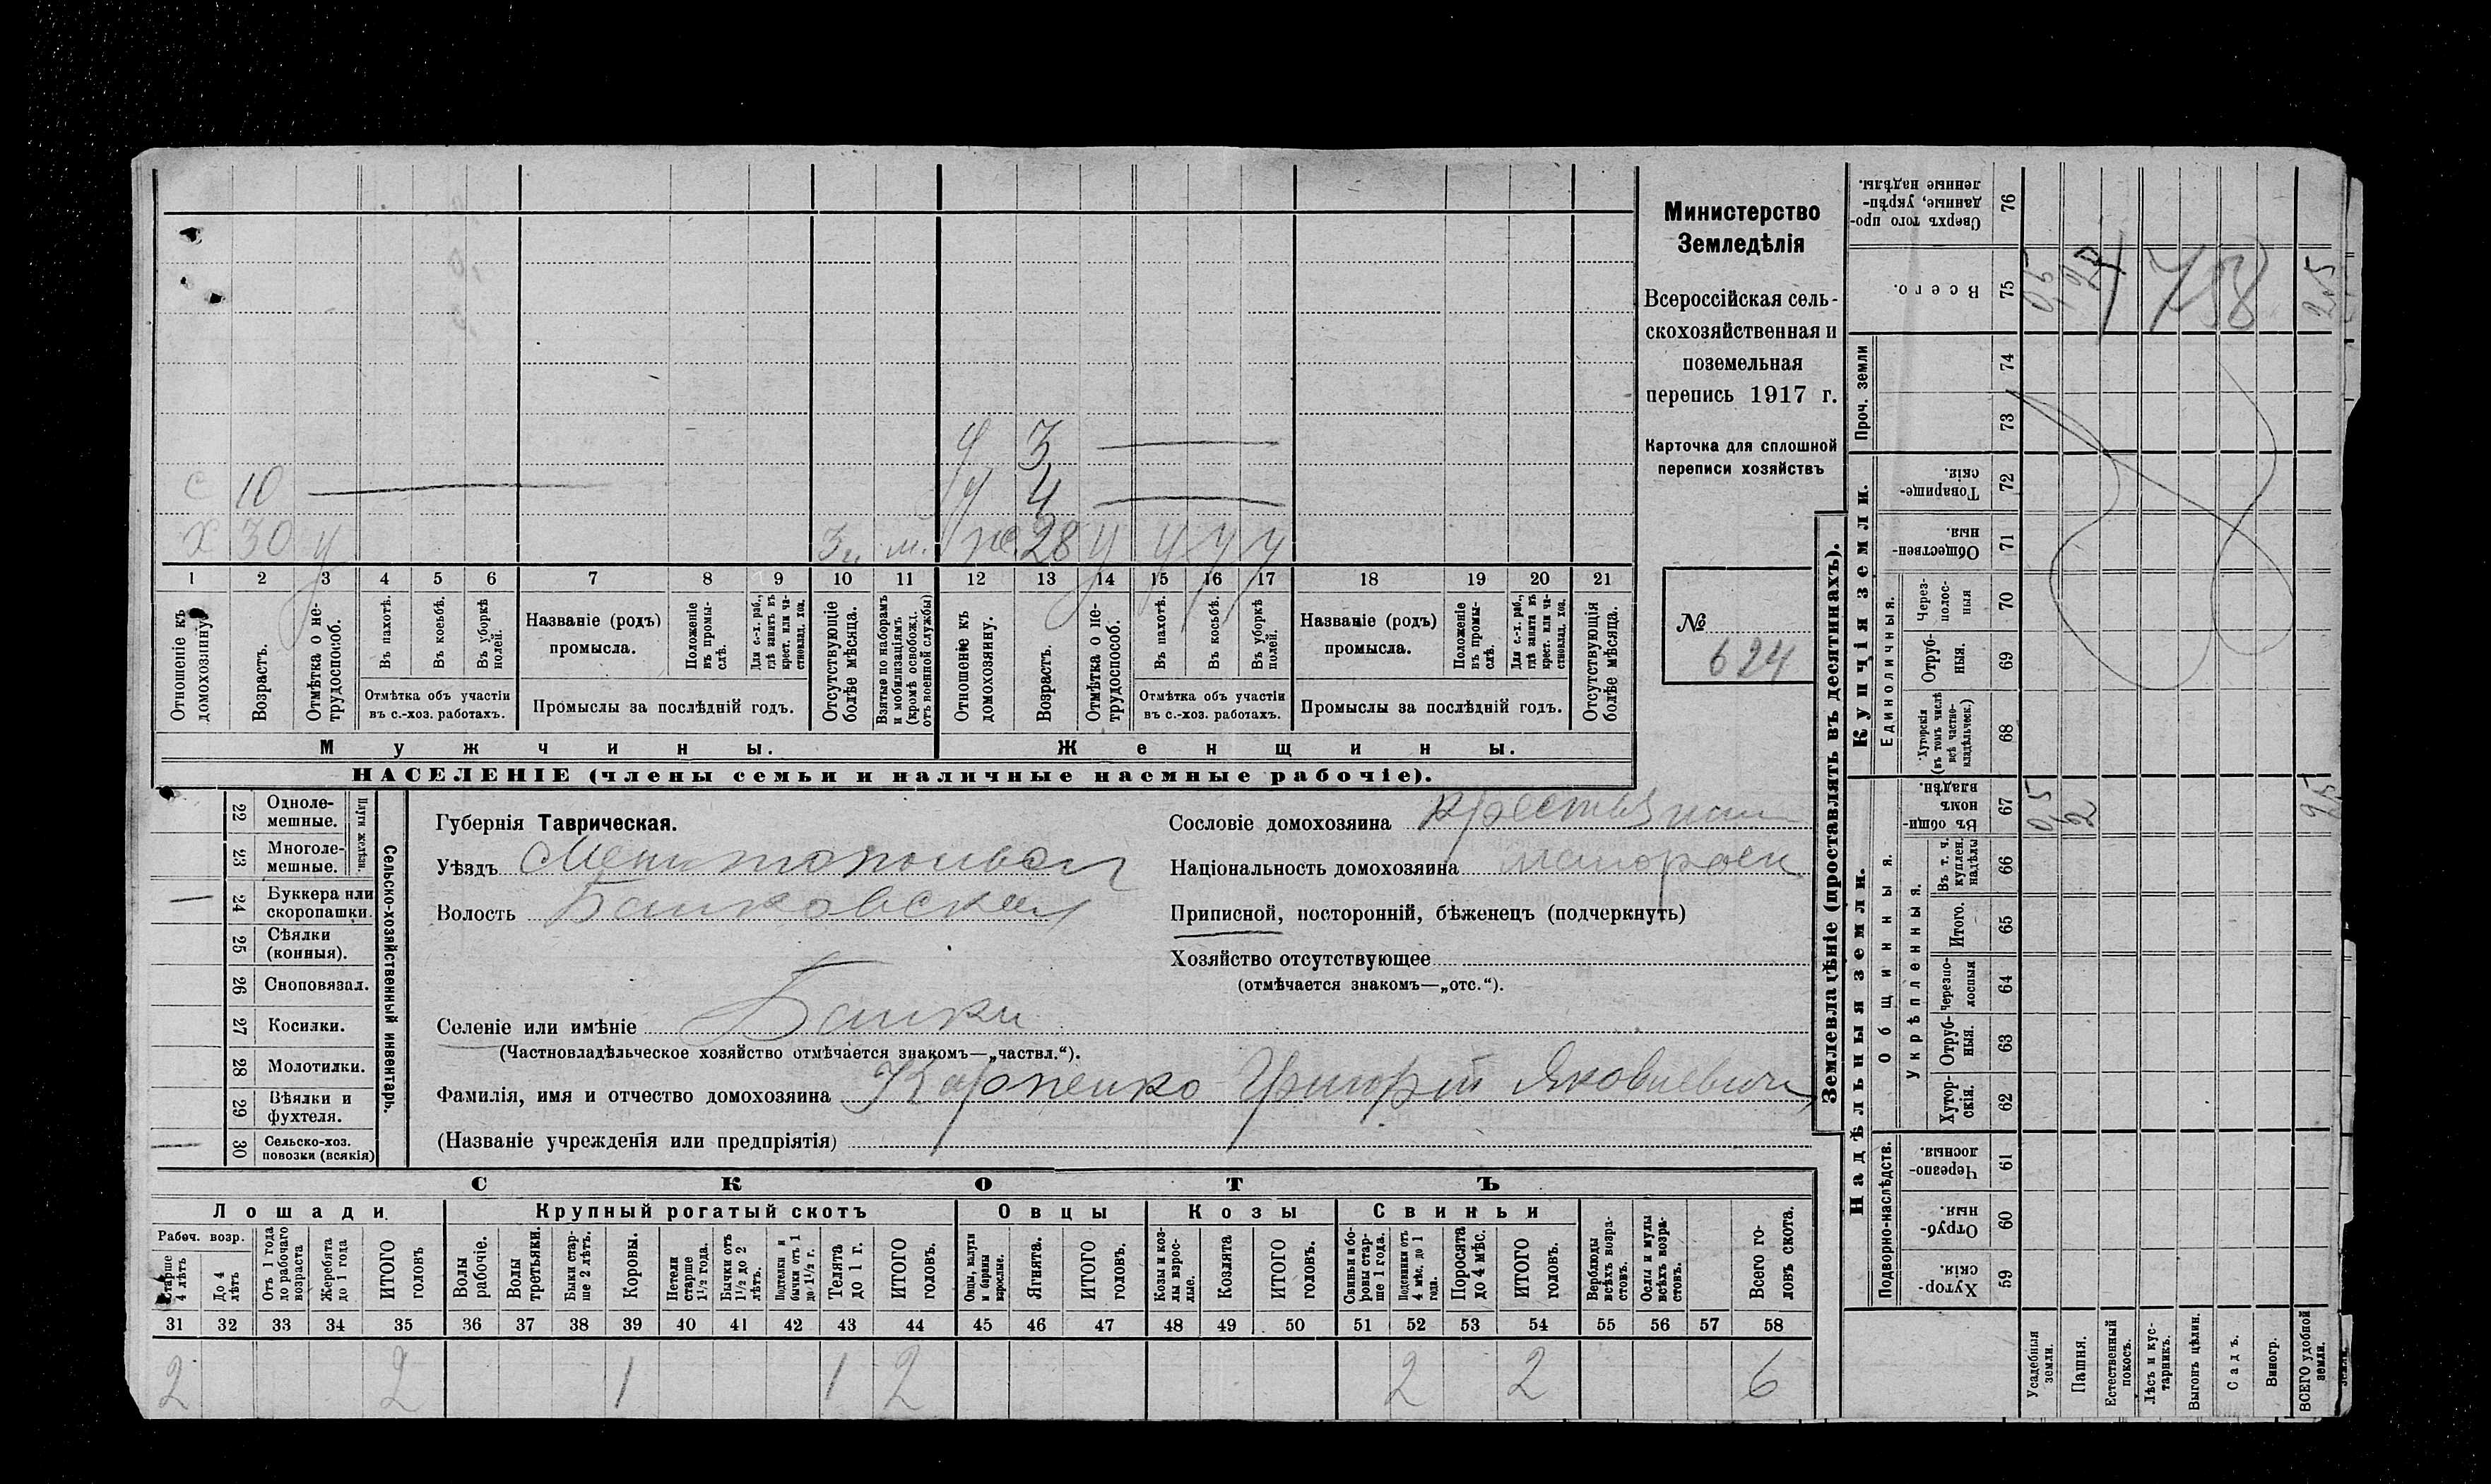 Министерство
Земледѣлія
Всероссійская сель-
скохозяйственная и
поземельная
перепись 1917 г.
Карточка для сплошной
переписи хозяйствъ
№
624
ч 3
с 10
ч 4
х 30 у 3 м. ж. 28 у у у у
1 2 3 4 5 6 7 8 9 10 11 12 13 14 15 16 17 18 19 20 21
Отношеніе къ домохозяину.
Возрастъ.
Отмѣтка о не-трудоспособ.
Въ пахотѣ.
Въ косьбѣ.
Въ уборкѣ полей.
Отмѣтка объ участіи
въ с.-хоз. работахъ.
Названіе (родъ)
промысла.
Положеніе въ промы-слѣ.
Для с.-х. раб., гдѣ занятъ въ крест. или ча-стновлад. хоз.
Промыслы за послѣдній годъ.
Отсутствующіе болѣе мѣсяца.
Взятые по наборамъ и мобилизаціямъ (кромѣ освобожд. отъ военной службы)
Отношеніе къ домохозяину.
Возрастъ.
Отмѣтка о не-трудоспособ.
Въ пахотѣ.
Въ косьбѣ.
Въ уборкѣ полей.
Отмѣтка объ участіи
въ с.-хоз. работахъ.
Названіе (родъ)
промысла.
Положеніе въ промы-слѣ.
Для с.-х. раб., гдѣ занята въ крест. или ча-стновлад. хоз.
Промыслы за послѣдній годъ.
Отсутствующія болѣе мѣсяца.
Мужчины.
Женщины.
НАСЕЛЕНІЕ (члены семьи и наличные наемные рабочіе).
Сельско-хозяйственный инвентарь.
Плуги желѣзн.
22 Одноле-мешные.
23 Многоле-мешные.
24 Буккера или скоропашки.
25 Сѣялки (конныя).
26 Сноповязал.
27 Косилки.
28 Молотилки.
29 Вѣялки и фухтеля.
30 Сельско-хоз. повозки (всякія)
Губернія Таврическая.
Уѣздъ Мелитопольскій
Волость Балковская
Селеніе или имѣніе Балки
(Частновладѣльческое хозяйство отмѣчается знакомъ—„частвл.“).
Фамилія, имя и отчество домохозяина Карпенко Григорій Яковлевичъ
(Названіе учрежденія или предпріятія)
Сословіе домохозяина крестьянин
Національность домохозяина малоросс
Приписной, посторонній, бѣженецъ (подчеркнуть)
Хозяйство отсутствующее
(отмѣчается знакомъ—„отс.“).
СКОТЪ
Лошади
Крупный рогатый скотъ
Овцы
Козы
Свиньи
Рабоч. возр.
Старше 4 лѣтъ
До 4 лѣтъ
Отъ 1 года до рабочаго возраста
Жеребята до 1 года
ИТОГО головъ
Волы рабочіе.
Волы третьяки.
Быки стар-ше 2 лѣтъ.
Коровы.
Нетели старше 1½ года.
Бычки отъ 1½ до 2 лѣтъ.
Подтелки и бычки отъ 1 до 1½ г.
Телята до 1 г.
ИТОГО головъ.
Овцы, валухи и бараны взрослые.
Ягнята.
ИТОГО головъ.
Козы и коз-лы взрос-лые.
Козлята
ИТОГО головъ.
Свиньи и бо-ровы стар-ше 1 года.
Подсвинки отъ 4 мѣс. до 1 года.
Поросята до 4 мѣс.
ИТОГО головъ.
Верблюды всѣхъ возра-стовъ.
Ослы и мулы всѣхъ возра-стовъ.
Всего го-ловъ скота.
31 32 33 34 35 36 37 38 39 40 41 42 43 44 45 46 47 48 49 50 51 52 53 54 55 56 57 58
2 2 1 1 2 2 2 6
Землевладѣніе (проставлять въ десятинахъ).
Сверхъ того про-данные, укрѣп-ленные надѣлы. 76
Всего. 75 0,5 2,5
758
Проч. земли 74 73
Купчія земли.
Товарище-скіе. 72
Обществен-ныя. 71
Единоличныя.
Через-полос-ныя 70
Отруб-ныя. 69
Хуторскія (въ томъ числѣ всѣ частно-владѣльческ.) 68
Надѣльныя земли.
Общинныя.
Въ общи-номъ владѣн. 67 0,5 2 2,5
Укрѣпленныя.
Въ т. ч. куплен. надѣлы 66
Итого. 65
Черезпо-лосныя 64
Отруб-ныя. 63
Хутор-скія. 62
Подворно-наслѣдств.
Черезпо-лосныя. 61
Отруб-ныя. 60
Хутор-скія. 59
Усадебныя земли.
Пашня.
Естественный покосъ.
Лѣсъ и кус-тарникъ.
Выгонъ цѣлин.
Садъ.
Виногр.
ВСЕГО удобной земли.